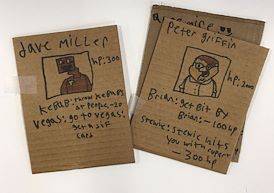 dave miller
hp:300
KEBAB: throw KEBABS
at people, -20
Vegas: go to vegas!
get a
card
peter griffin
hp:
Brian: get Bit By
Brian: -100hp
Stewie: Stewie hits
you with
-300hp